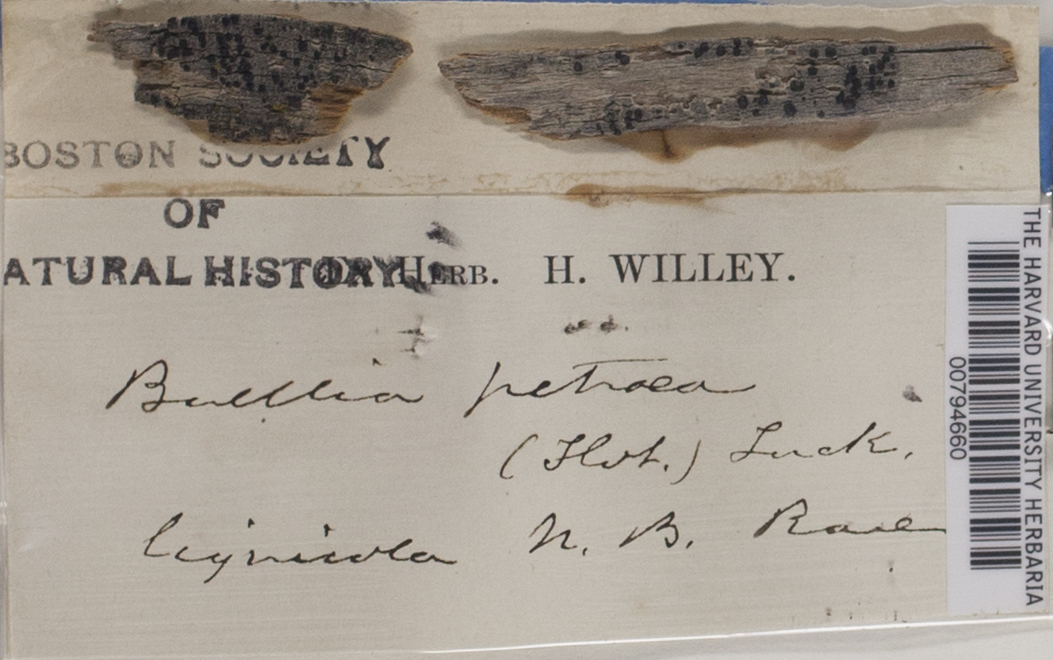 BOSTON SOCIETY
OF
ATURAL HISTORY HERB. H. WILLEY.
Buellia petraea
(Flot.) Tuck.
lignicola N. B. Rare
THE HARVARD UNIVERSITY HERBARIA
00794660